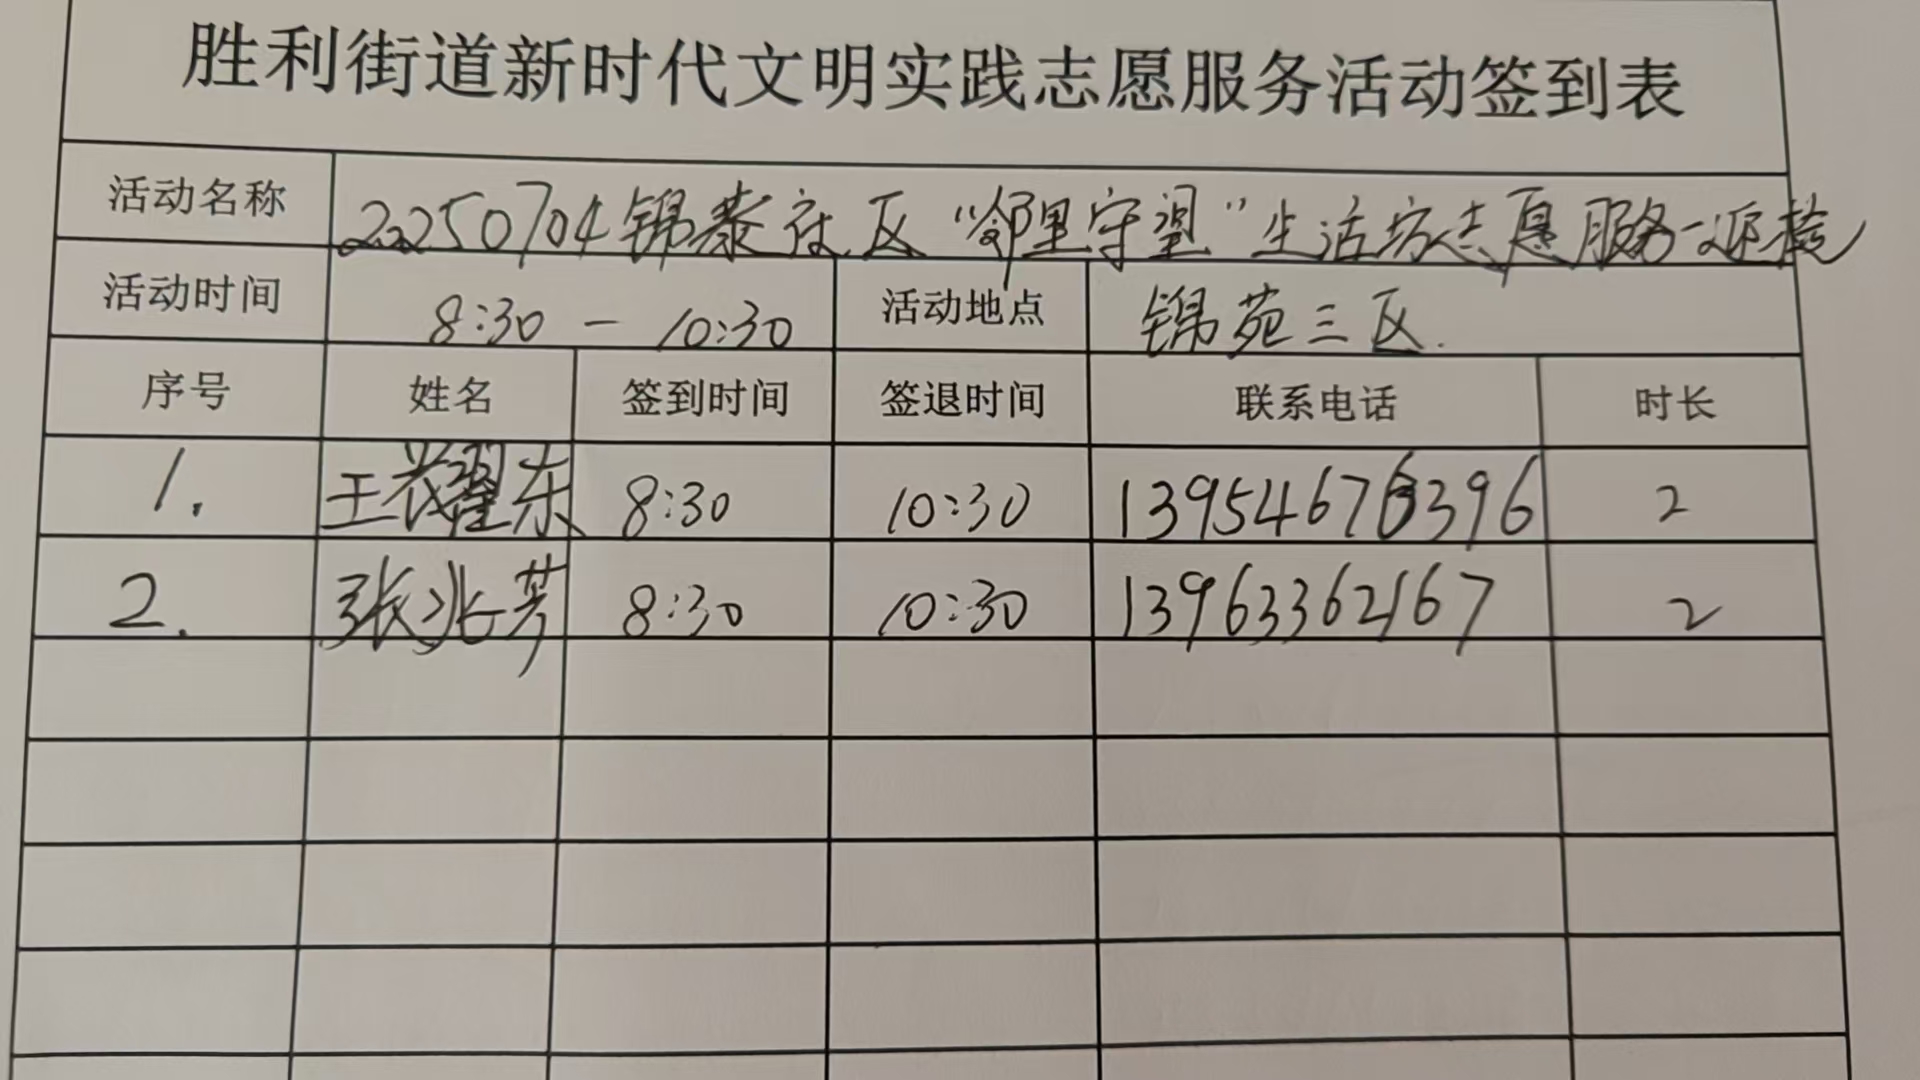 胜利街道新时代文明实践志愿服务活动签到表
活动名称 20250704锦泰社区“邻里守望”生活坊志愿服务-巡楼
活动时间 8:30 - 10:30 活动地点 锦苑三区.
序号 姓名 签到时间 签退时间 联系电话 时长
1. 王 东 8:30 10:30 2
2. 张兆芳 8:30 10:30 13963362167 2